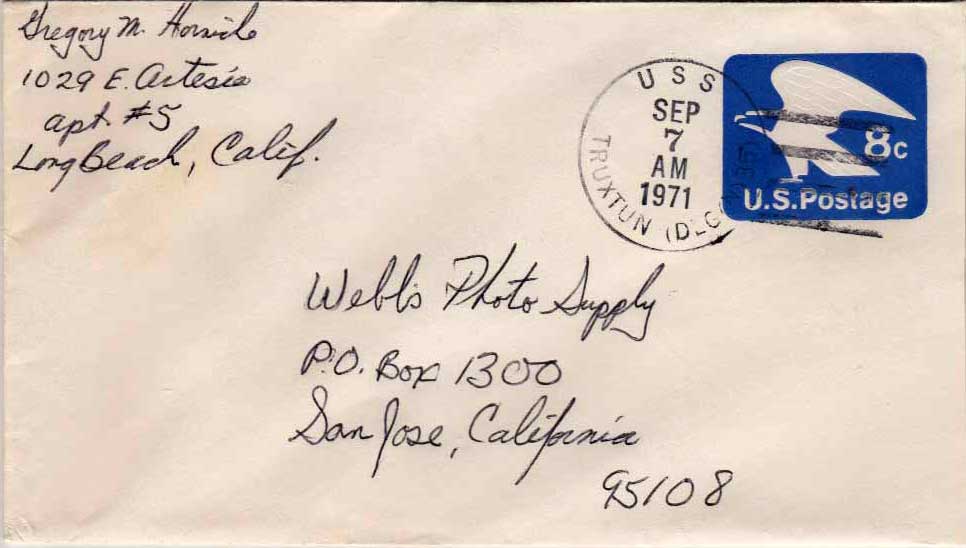 Gregory M.
1029 E. Artesia
apt. #5
Long Beach, Calif.
USS
SEP
7
AM
1971
TRUXTUN (DLG
8c
U.S. Postage
Webb's Photo Supply
P.O. Box 1300
San Jose, California
95108